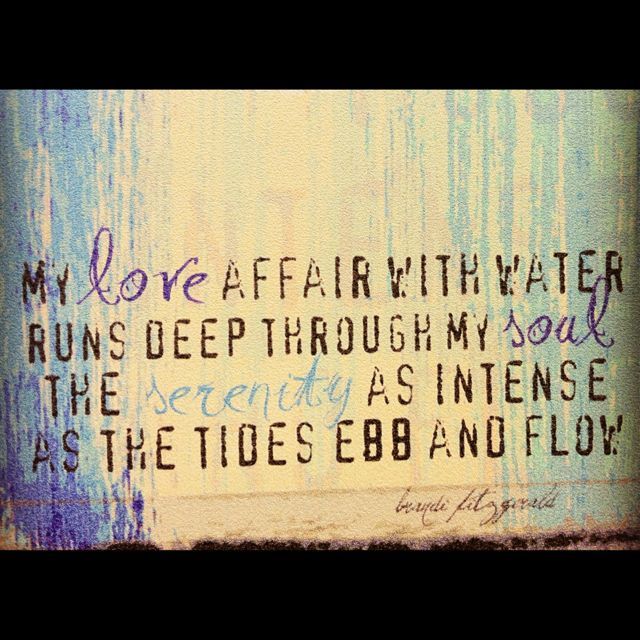 MY love AFFAIR WITH WATER
RUNS DEEP THROUGH MY soul
THE serenity AS INTENSE
AS THE TIDES EBB AND FLOW
brandi fitzgerald